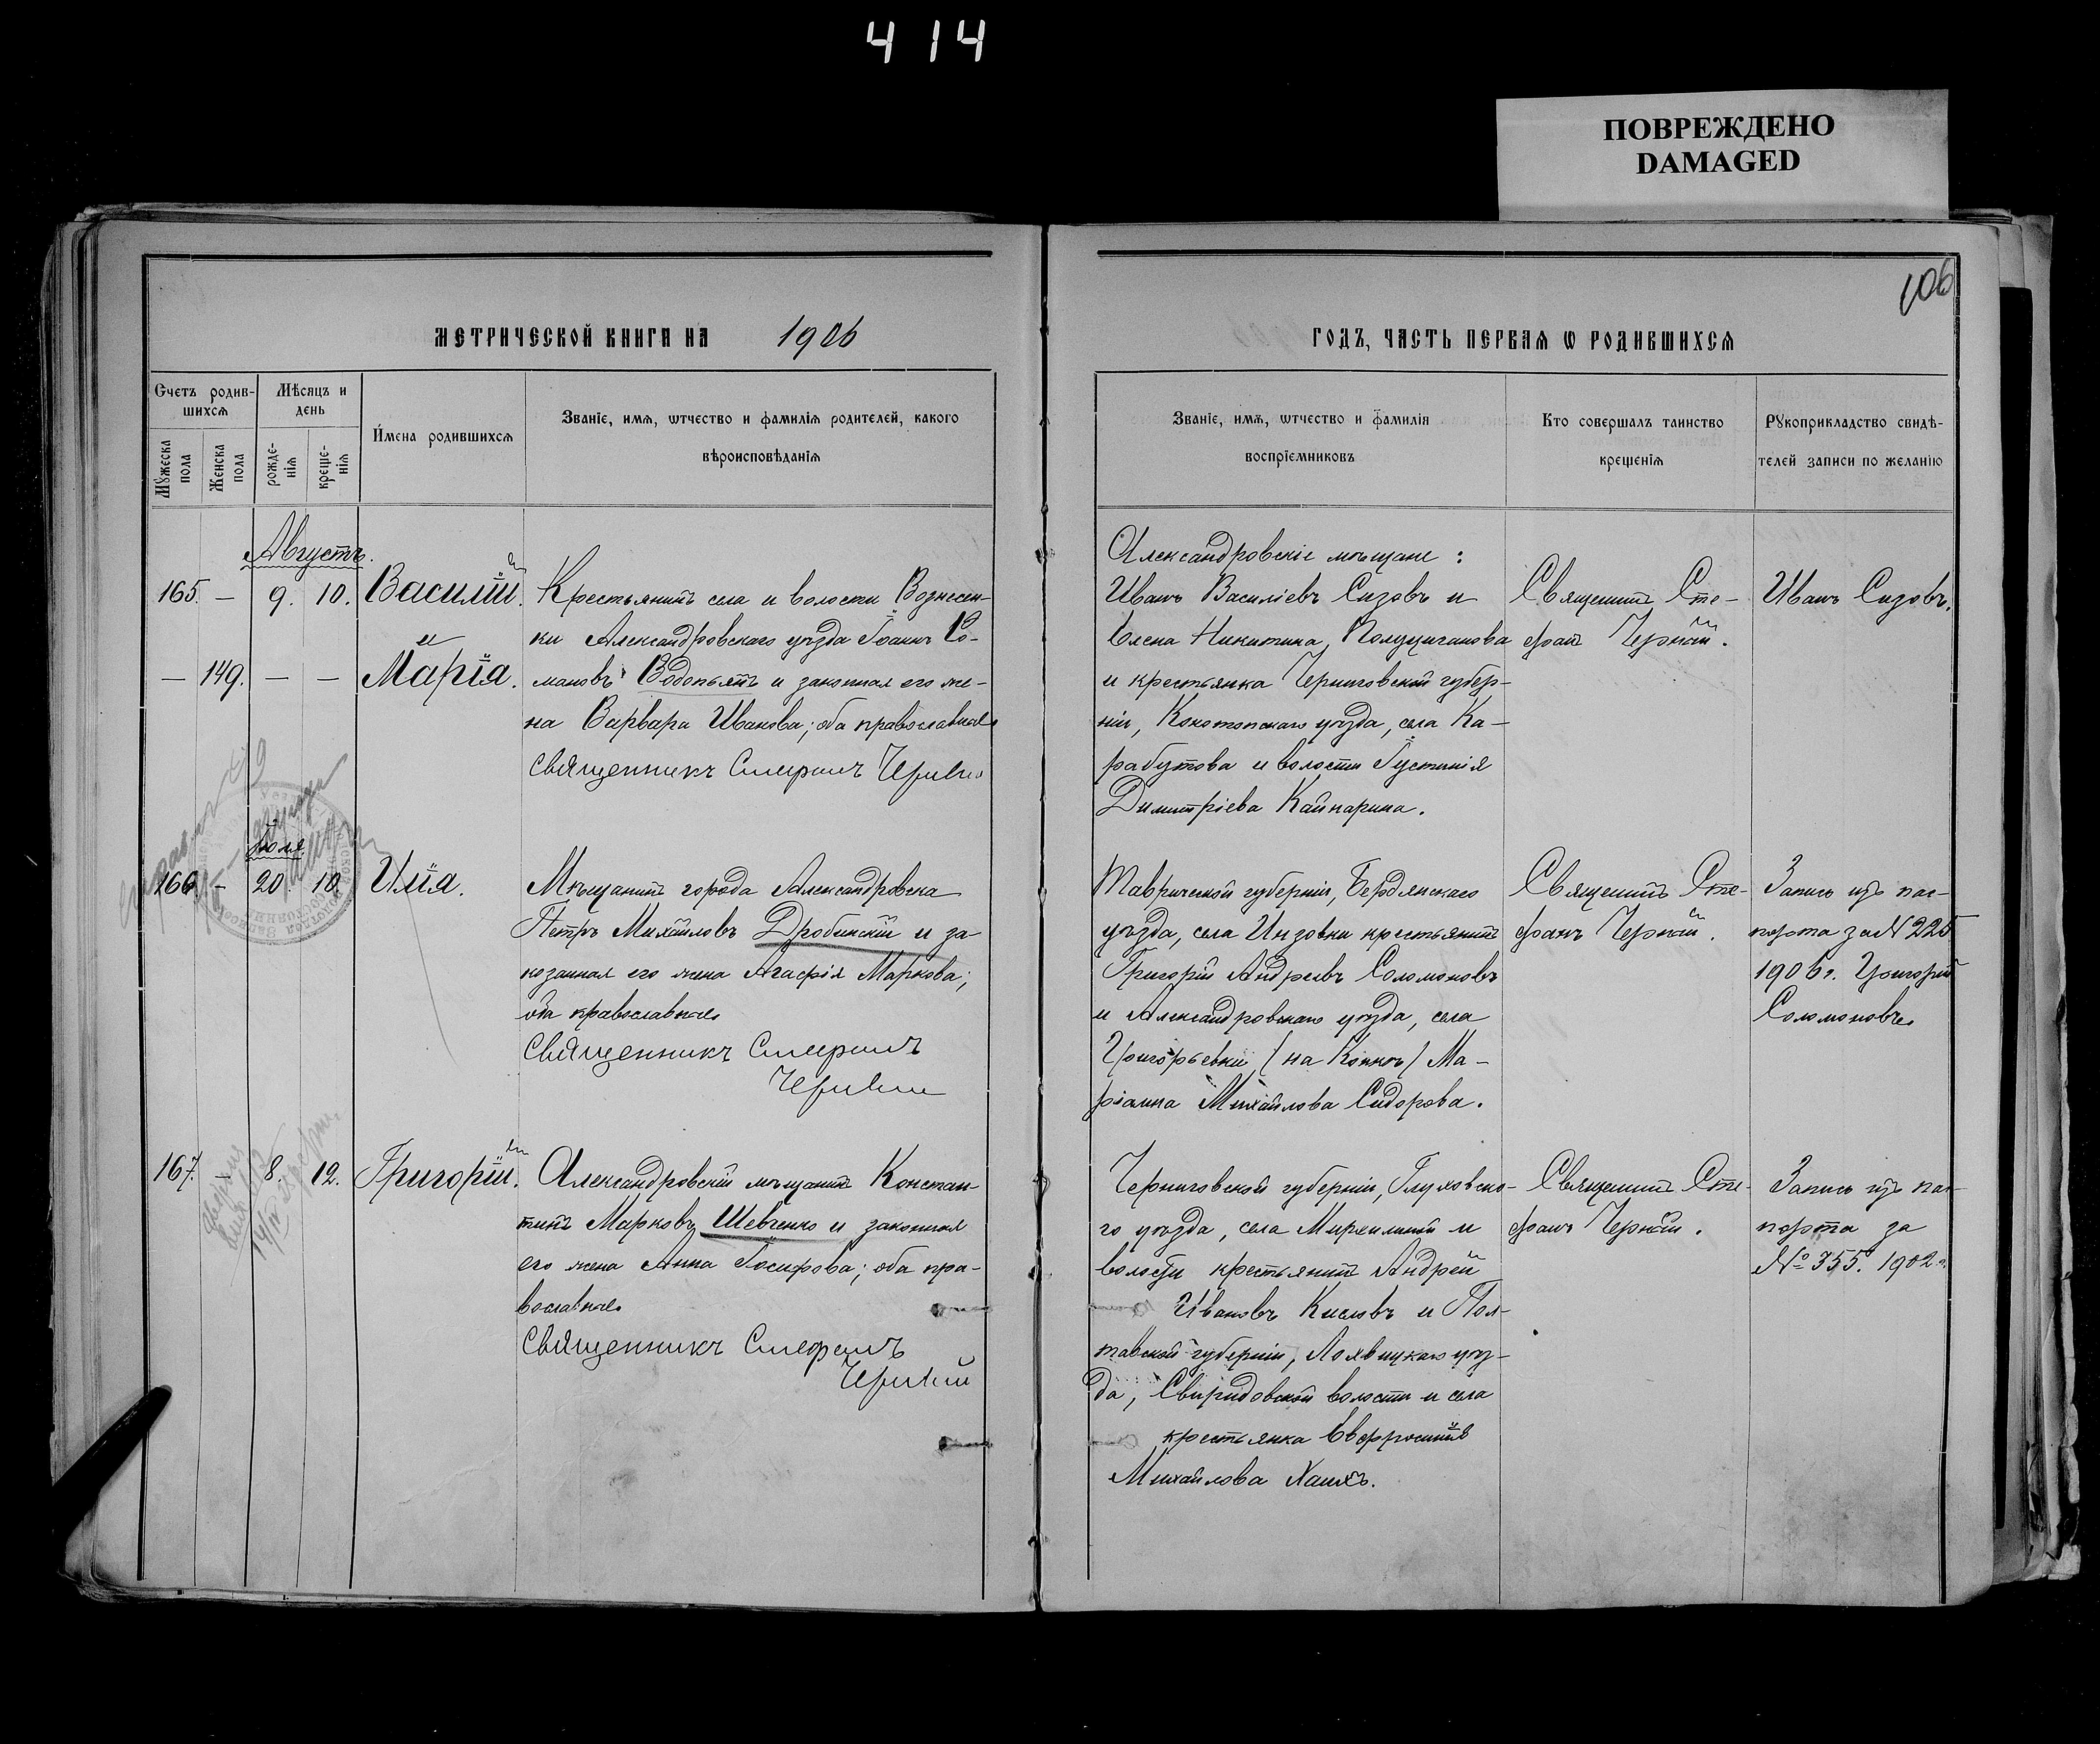 414
ПОВРЕЖДЕНО
DAMAGED
106
МЕТРИЧЕСКОЙ КНИГИ НА 1906
ГОДЪ, ЧАСТЬ ПЕРВАЯ Ѡ РОДИВШИХСЯ
Счетъ родив-
шихся
Мѣсяцъ и
день
Мꙋжеска
пола
Женска
пола
рожде-
нія
креще-
нія
Имена родившихся
Званіе, имя, ѡтчество и фамилія родителей, какого
вѣроисповѣданія
Званіе, имя, ѡтчество и фамилія
воспріемниковъ
Кто совершалъ таинство
крещенія
Рꙋкоприкладство свидѣ-
телей записи по желанію
Августъ.
165. — 9. 10. Василій.
и
— 149. — — Марія.
Крестьянинъ села и волости Вознесен-
ки Александровскаго уѣзда Іоаннъ Ро-
мановъ Водопьянъ и законная его же-
на Варвара Иванова; оба православные
Священникъ Стефанъ Черный
Александровскіе мѣщане:
Иванъ Василіевъ Сизовъ и
Елена Никитина Полуциганова
и крестьянка Черниговской губер-
ніи, Конотопскаго уѣзда, села Ка-
рабутова и волости Густинія
Димитріева Кайнарина.
Священникъ Сте-
фанъ Черный.
Иванъ Сизовъ.
Іюля
166. — 20. 10. Илія.
Мѣщанинъ города Александровска
Петръ Михайловъ Дробинскій и за-
конная его жена Агафія Маркова;
оба православные
Священникъ Стефанъ
Черный
Таврической губерніи, Бердянскаго
уѣзда, села Инзовки крестьянинъ
Григорій Андреевъ Соломоновъ
и Александровскаго уѣзда, села
Григорьевки (на Конкѣ) Ма-
ріанна Михайлова Сидорова.
Священникъ Сте-
фанъ Черный.
Запись изъ пас-
порта за № 225
1906 г. Григорій
Соломоновъ
167. — 8. 12. Григорій.
Александровскій мѣщанинъ Констан-
тинъ Марковъ Шевченко и законная
его жена Анна Іосифова; оба пра-
вославные
Священникъ Стефанъ
Черный
Черниговской губерніи, Глуховска-
го уѣзда, села и
волости крестьянинъ Андрей
Ивановъ Кисловъ и Пол-
тавской губерніи, Лохвицкаго уѣз-
да, Свиридовской волости и села
крестьянка Евфросинія
Михайлова
Священникъ Сте-
фанъ Черный.
Запись изъ пас-
порта за
№ 355. 1902 г.